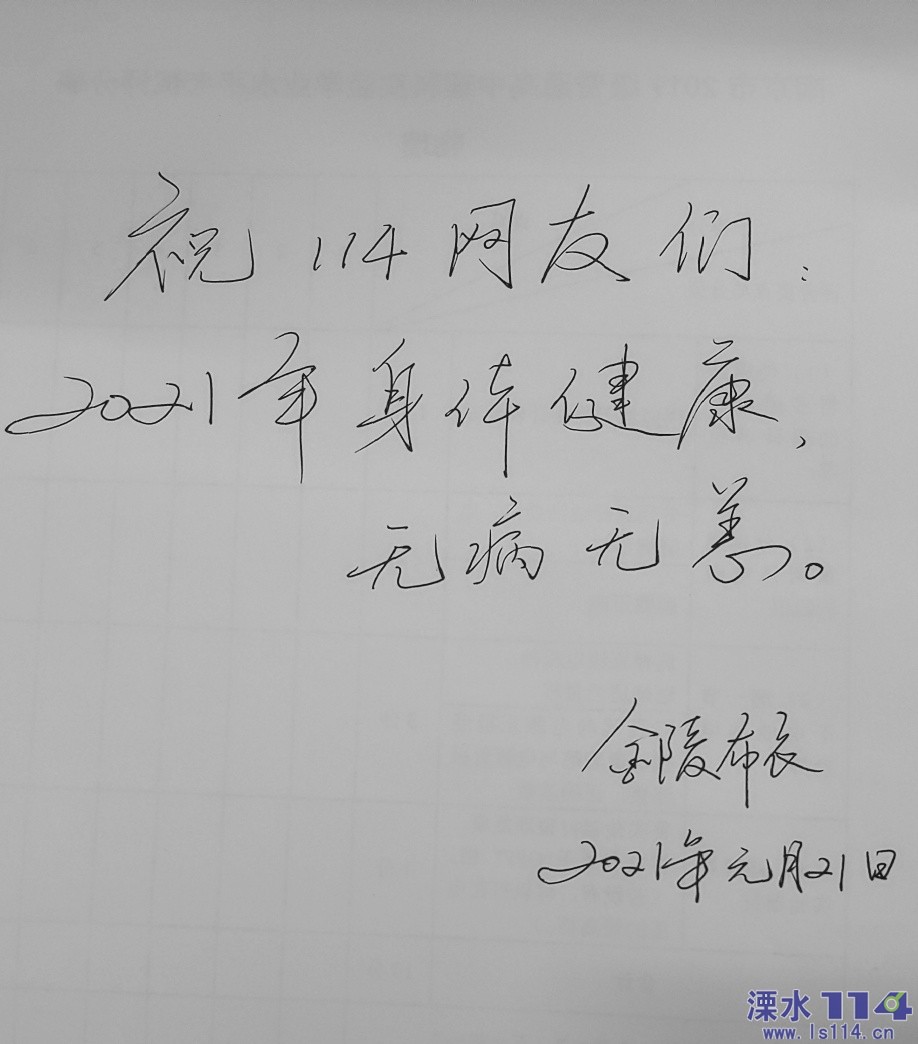 祝114网友们:
2021年身体健康,
无病无恙。
金陵布衣
2021年元月21日
溧水114
www.ls114.cn